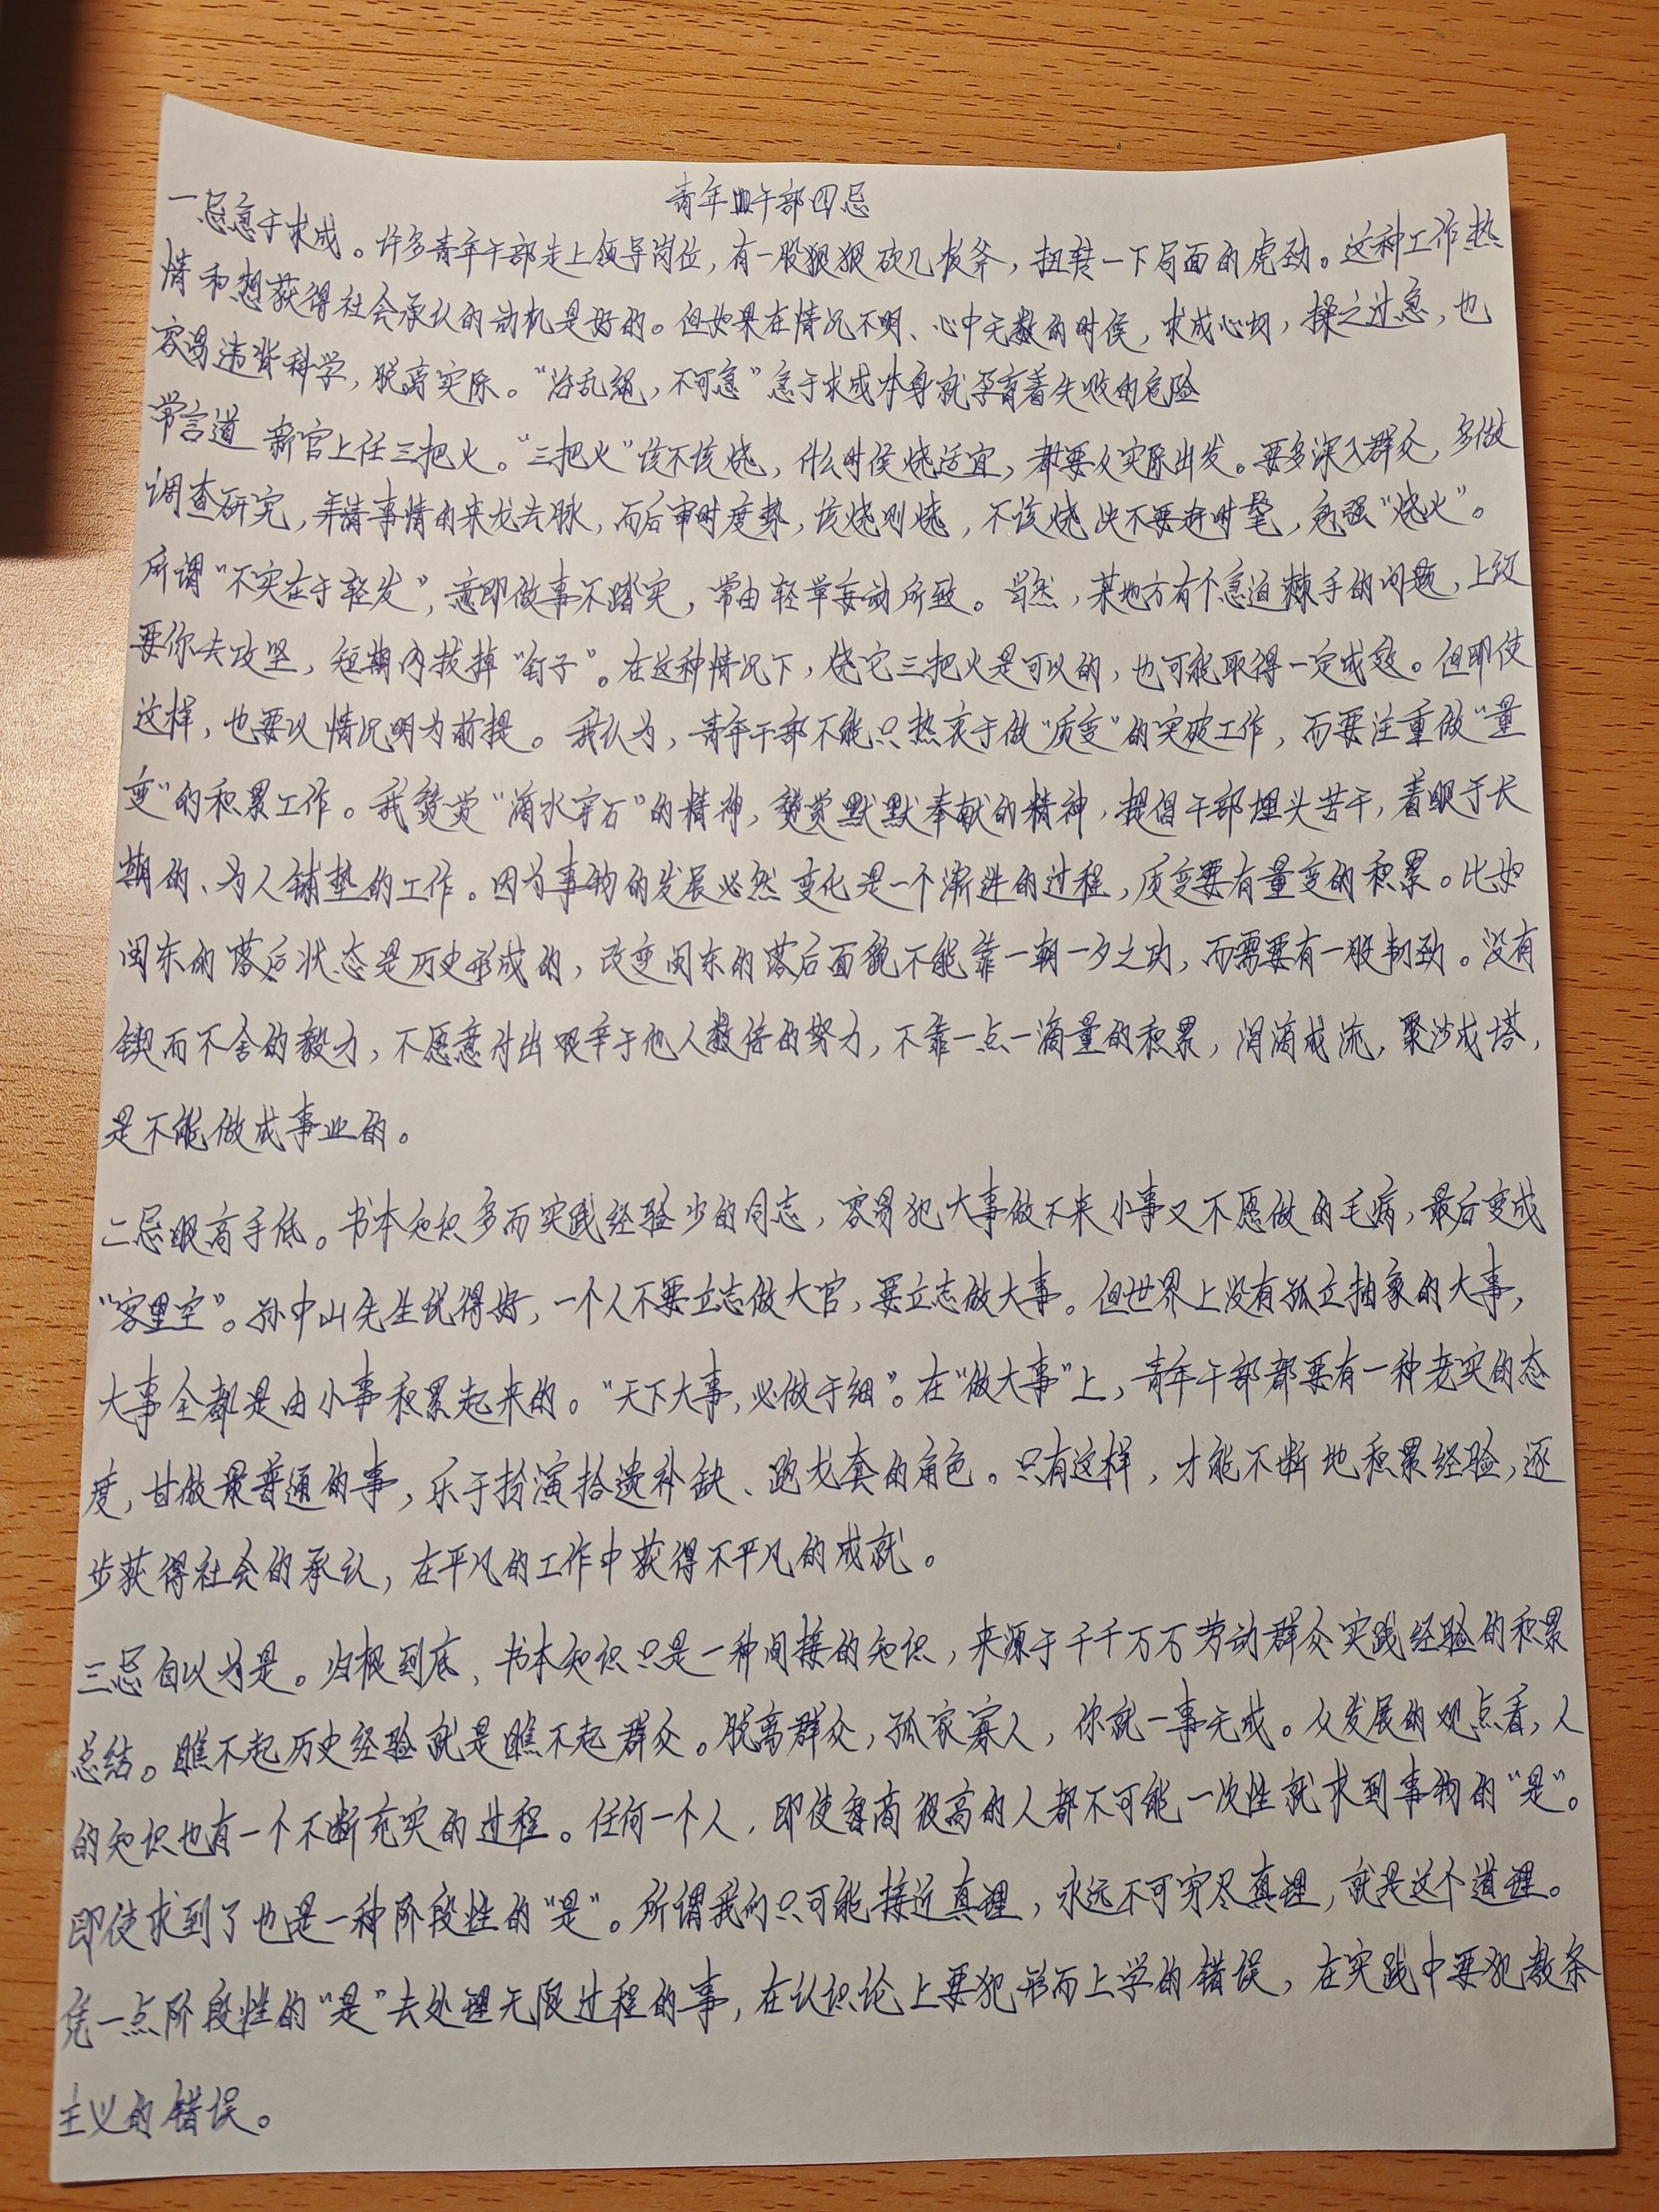 青年干部四忌
一忌急于求成。许多青年干部走上领导岗位，有一股狠狠砍几板斧，扭转一下局面的虎劲。这种工作热
情和想获得社会承认的动机是好的。但如果在情况不明、心中无数的时候，求成心切，操之过急，也
容易违背科学，脱离实际。“治乱绳，不可急”急于求成本身就孕育着失败的危险
常言道 新官上任三把火。“三把火”该不该烧，什么时候烧适宜，都要从实际出发。要多深入群众，多做
调查研究，弄清事情的来龙去脉，而后审时度势，该烧则烧，不该烧决不要赶时髦，勉强“烧火”。
所谓“不实在于轻发”，意即做事不踏实，常由轻举妄动所致。当然，某地方有个急迫棘手的问题，上级
要你去攻坚，短期内拔掉“钉子”。在这种情况下，烧它三把火是可以的，也可能取得一定成效。但即使
这样，也要以情况明为前提。我认为，青年干部不能只热衷于做“质变”的突破工作，而要注重做“量
变”的积累工作。我赞赏“滴水穿石”的精神，赞赏默默奉献的精神，提倡干部埋头苦干，着眼于长
期的、为人铺垫的工作。因为事物的发展必然变化是一个渐进的过程，质变要有量变的积累。比如
闽东的落后状态是历史形成的，改变闽东的落后面貌不能靠一朝一夕之功，而需要有一股韧劲。没有
锲而不舍的毅力，不愿意付出艰辛于他人数倍的努力，不靠一点一滴量的积累，涓滴成流，聚沙成塔，
是不能做成事业的。
二忌眼高手低。书本知识多而实践经验少的同志，容易犯大事做不来小事又不愿做的毛病，最后变成
“客里空”。孙中山先生说得好，一个人不要立志做大官，要立志做大事。但世界上没有孤立抽象的大事，
大事全都是由小事积累起来的。“天下大事，必做于细”。在“做大事”上，青年干部都要有一种老实的态
度，甘做最普通的事，乐于扮演拾遗补缺、跑龙套的角色。只有这样，才能不断地积累经验，逐
步获得社会的承认，在平凡的工作中获得不平凡的成就。
三忌自以为是。归根到底，书本知识只是一种间接的知识，来源于千千万万劳动群众实践经验的积累
总结。瞧不起历史经验就是瞧不起群众。脱离群众，孤家寡人，你就一事无成。从发展的观点看，人
的知识也有一个不断充实的过程。任何一个人，即使智商很高的人都不可能一次性就求到事物的“是”。
即使求到了也是一种阶段性的“是”。所谓我们只可能接近真理，永远不可穷尽真理，就是这个道理。
凭一点阶段性的“是”去处理无限过程的事，在认识论上要犯形而上学的错误，在实践中要犯教条
主义的错误。